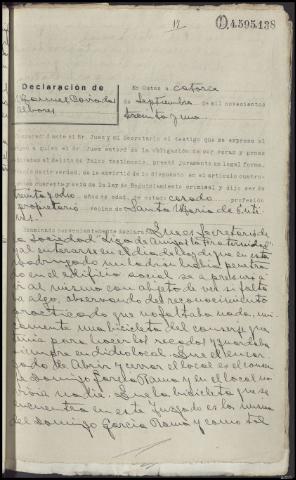 12
1.595.138
Declaración de
Manuel Borrado
Albores
En Oates a catorce
de Septiembre de mil novecientos
treinta y uno
Compareció ante el Sr. Juez y mi Secretario el testigo que se expresa al
a quien el Sr. Juez enteró de la obligación de ser veraz y penas
al delito de falso testimonio, prestó juramento en legal forma,
decir verdad, de lo advertido de lo dispuesto en el artículo cuatro-
cuarenta y seis de la Ley de Enjuiciamiento criminal y dijo ser de
treinta y ocho años de edad, de estado casado profesión
propietario vecino de Santa Maria de
Examinado convenientemente declara: Que es Secretario de
la Sociedad "Liga de Amigos la Fraternidad"
y al enterarse en el dia de hoy de que en esta
madrugada un ladrón habia penetra-
do en el edificio social se a personado
en el mismo con objeto de ver si falta-
ba algo, observando del reconocimiento
practicado que no faltaba nada, uni-
camente una bicicleta del conserje que
tenia para hacer los recados y guardaba
siempre en dicho local. Que el encar-
gado de Abrir y cerrar el local es el conser-
je Domingo Garcia Ramo y en el local no
vivia nadie. Que la bicicleta que se
encuentra en este Juzgado es la misma
del Domingo Garcia Ramo y como tal